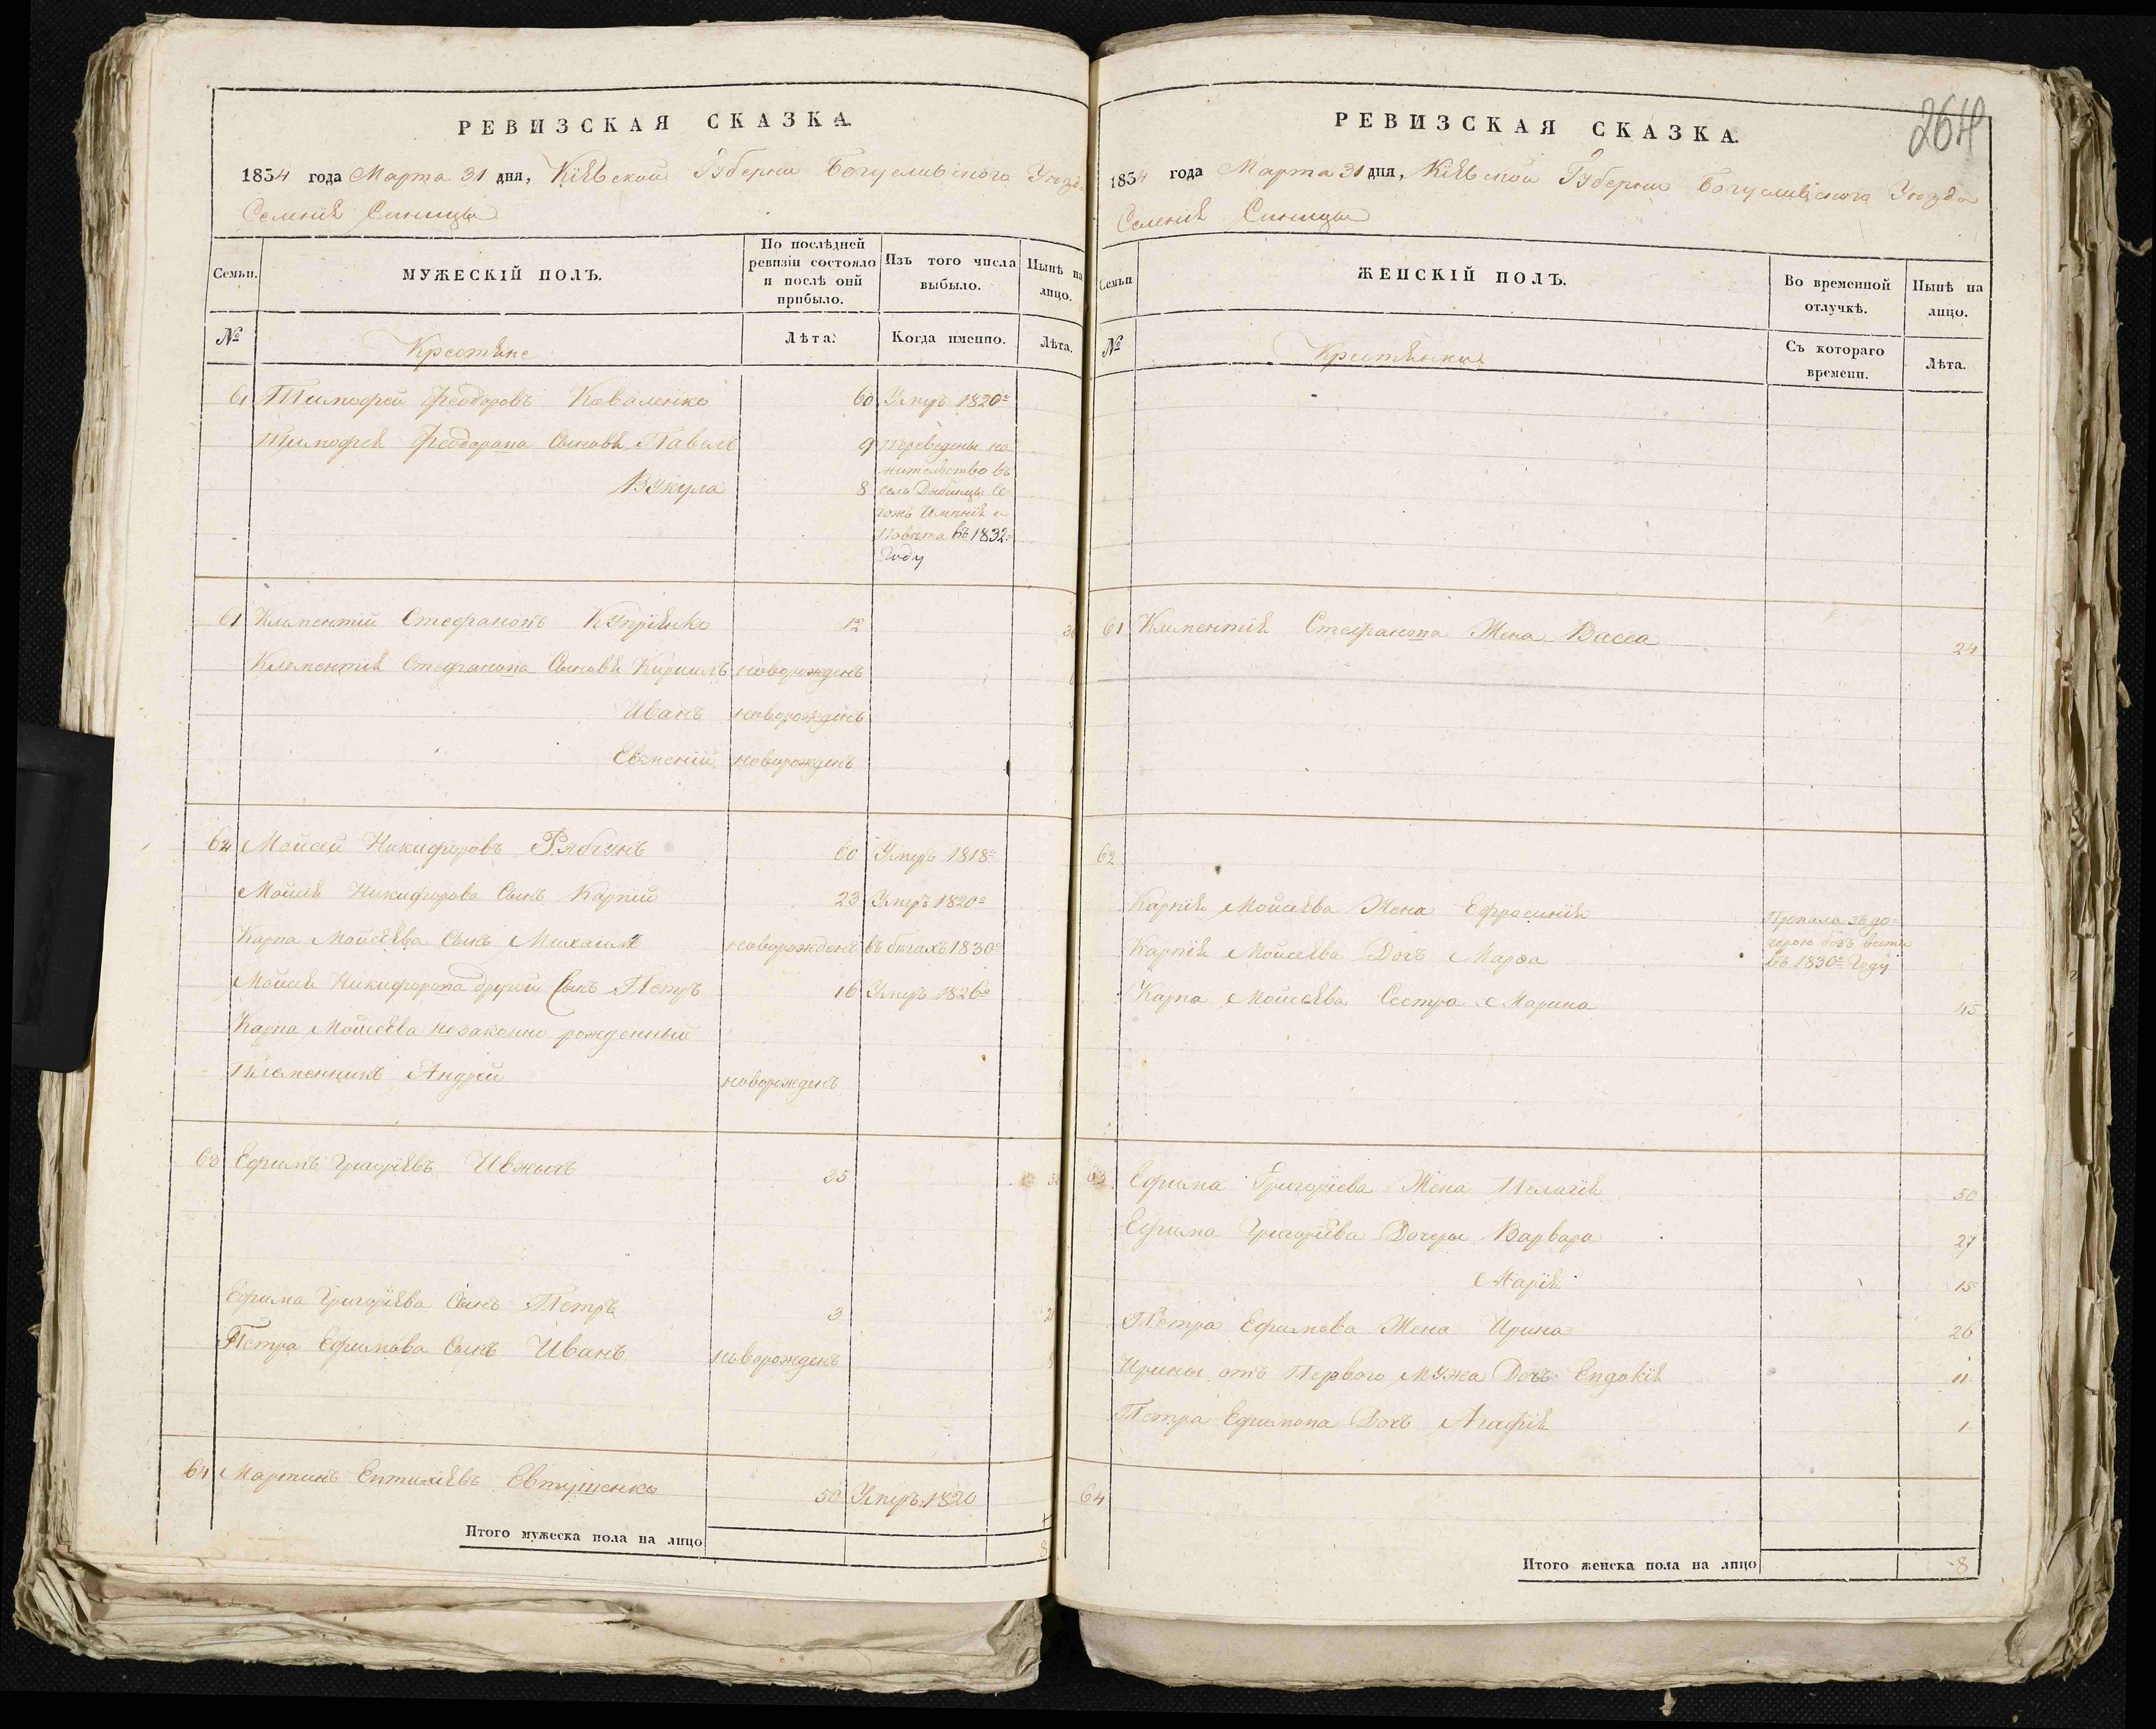 РЕВИЗСКАЯ СКАЗКА.
1834 года Марта 31 дня, Кіевской Губерніи Богуславскаго Уезда
Селенія Синицы
Семьи.
МУЖЕСКІЙ ПОЛЪ.
По послѣдней ревизіи состояло и послѣ оній прибыло.
Изъ того числа выбыло.
Нынѣ на лицо.
№
Крестяне
Лѣта.
Когда именно.
Лѣта.
61 Тимофей Феодоровъ Коваленко 60 Умеръ 1820го
Тимофея Феодорова Сыновя Павелъ 9 переведены на
жителство въ
Вукула 8 село Дыбинцы
имѣнія и
Повета въ 1832м
Году
61 Климентій Стефановъ Купріянко 12
Климентія Стефанова Сыновя Кирилъ новорожденъ
Иванъ новорожденъ
новорожденъ
62 Мойсей Никифоровъ Рябчунъ 60 Умеръ 1818го
Мойсея Никифорова Сынъ Карпій 23 Умеръ 1820го
Карпа Мойсеева Сынъ Михаилъ новорожденъ въ бегахъ 1830го
Мойсея Никифорова другой Сынъ Петръ 16 Умеръ 1826го
Карпа Мойсеева незаконно рожденный
Племенникъ Андрей новорожденъ
63 Ефимъ Григоріевъ 35
Ефима Григоріева Сынъ Петръ 3
Петра Ефимова Сынъ Иванъ новорожденъ
64 Мартинъ Евтихіевъ Евтушенко 50 Умеръ 1820
Итого мужеска пола на лицо 8
264
РЕВИЗСКАЯ СКАЗКА.
1834 года Марта 31 дня, Кіевской Губерніи Богуславскаго Уезда
Селенія Синицы
Семьи
ЖЕНСКІЙ ПОЛЪ.
Во временной отлучкѣ.
Нынѣ на лицо.
№
Крестянки
Съ котораго времени.
Лѣта.
61 Климентія Стефанова Жена Васса 24
62
Карпія Мойсеева Жена Ефросинія Пропала зъ до-
черою безъ вести
Карпія Мойсеева Дочъ Марѳа въ 1830м Году
Карпа Мойсеева Сестра Марина 45
63 Ефима Григоріева Жена Пелагія 50
Ефима Григоріева Дочеры Варвара 27
Марія 15
Петра Ефимова Жена Ирина 26
Ирины отъ Первого Мужа Дочъ Евдокія 11
Петра Ефимова Дочъ Агафія 1
64
Итого женска пола на лицо 8